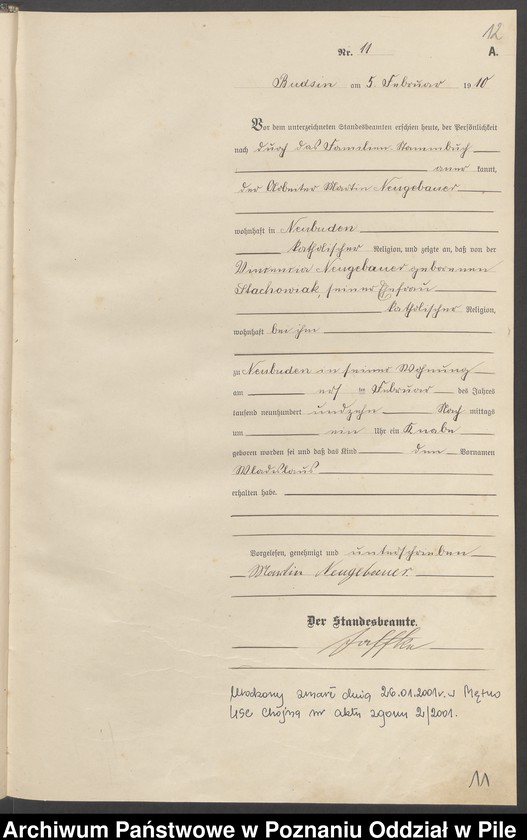 12
A.
Nr. 11
Budsin am 5. Februar 1910
Vor dem unterzeichneten Standesbeamten erschien heute, der Persönlichkeit
nach durch das Familien Stammbuch
aner kannt,
der Arbeiter Martin Neugebauer
wohnhaft in Neubuden
katholischer Religion, und zeigte an, daß von der
Vincencia Neugebauer geborenen
Stachowiak, seiner Ehefrau
katholischer Religion,
wohnhaft bei ihm
zu Neubuden in seiner Wohnung
am im Februar des Jahres
tausend neunhundert und zehn Nach mittags
um ein Uhr ein Knabe
geboren worden sei und daß das Kind den Vornamen
Wladislaus
erhalten habe.
Vorgelesen, genehmigt und unterschrieben
Martin Neugebauer.
Der Standesbeamte.
Jaffke
Urodzony zmarł dnia 26.01.2001r. w Mętno
USC Chojna nr aktu zgonu 2/2001.
11
Archiwum Państwowe w Poznaniu Oddział w Pile